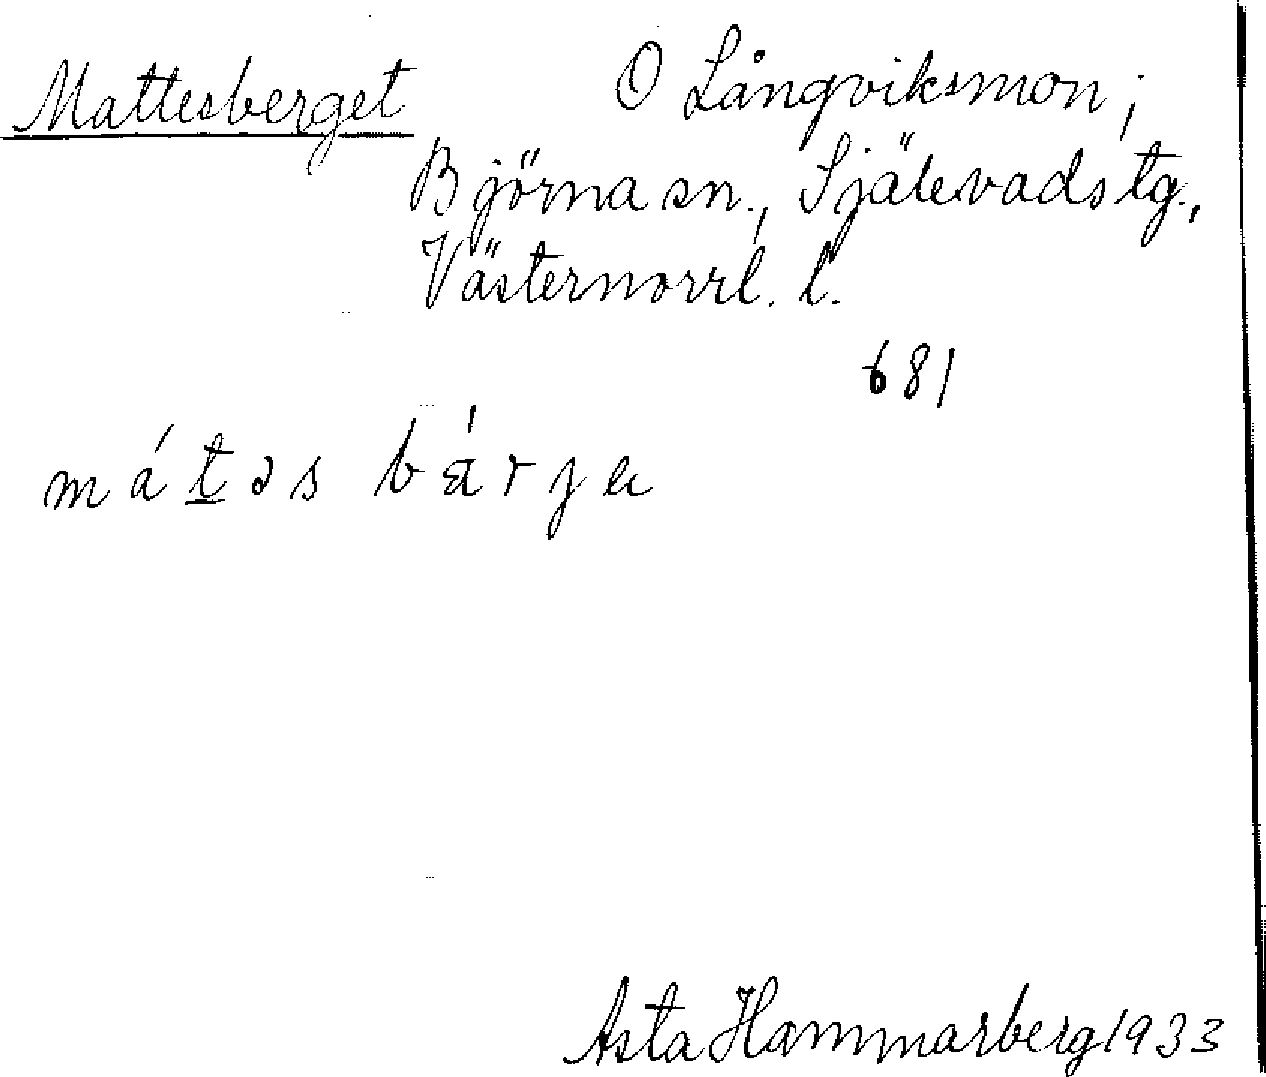 Mattesberget O Långviksmon;
Björna sn., Själevads tg.,
Västernorrl. l.
681
má<u>t</u>əs bárjɐ
Asta Hammarberg 1933